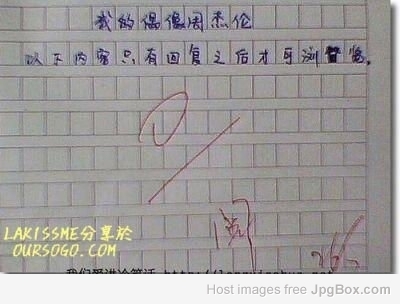 我的偶像周杰伦
以下内容只有回复之后才可浏览。
0
阅
LAKISSME分享於
OURSOGO.COM
我们爱讲冷笑话
Host images free JpgBox.com